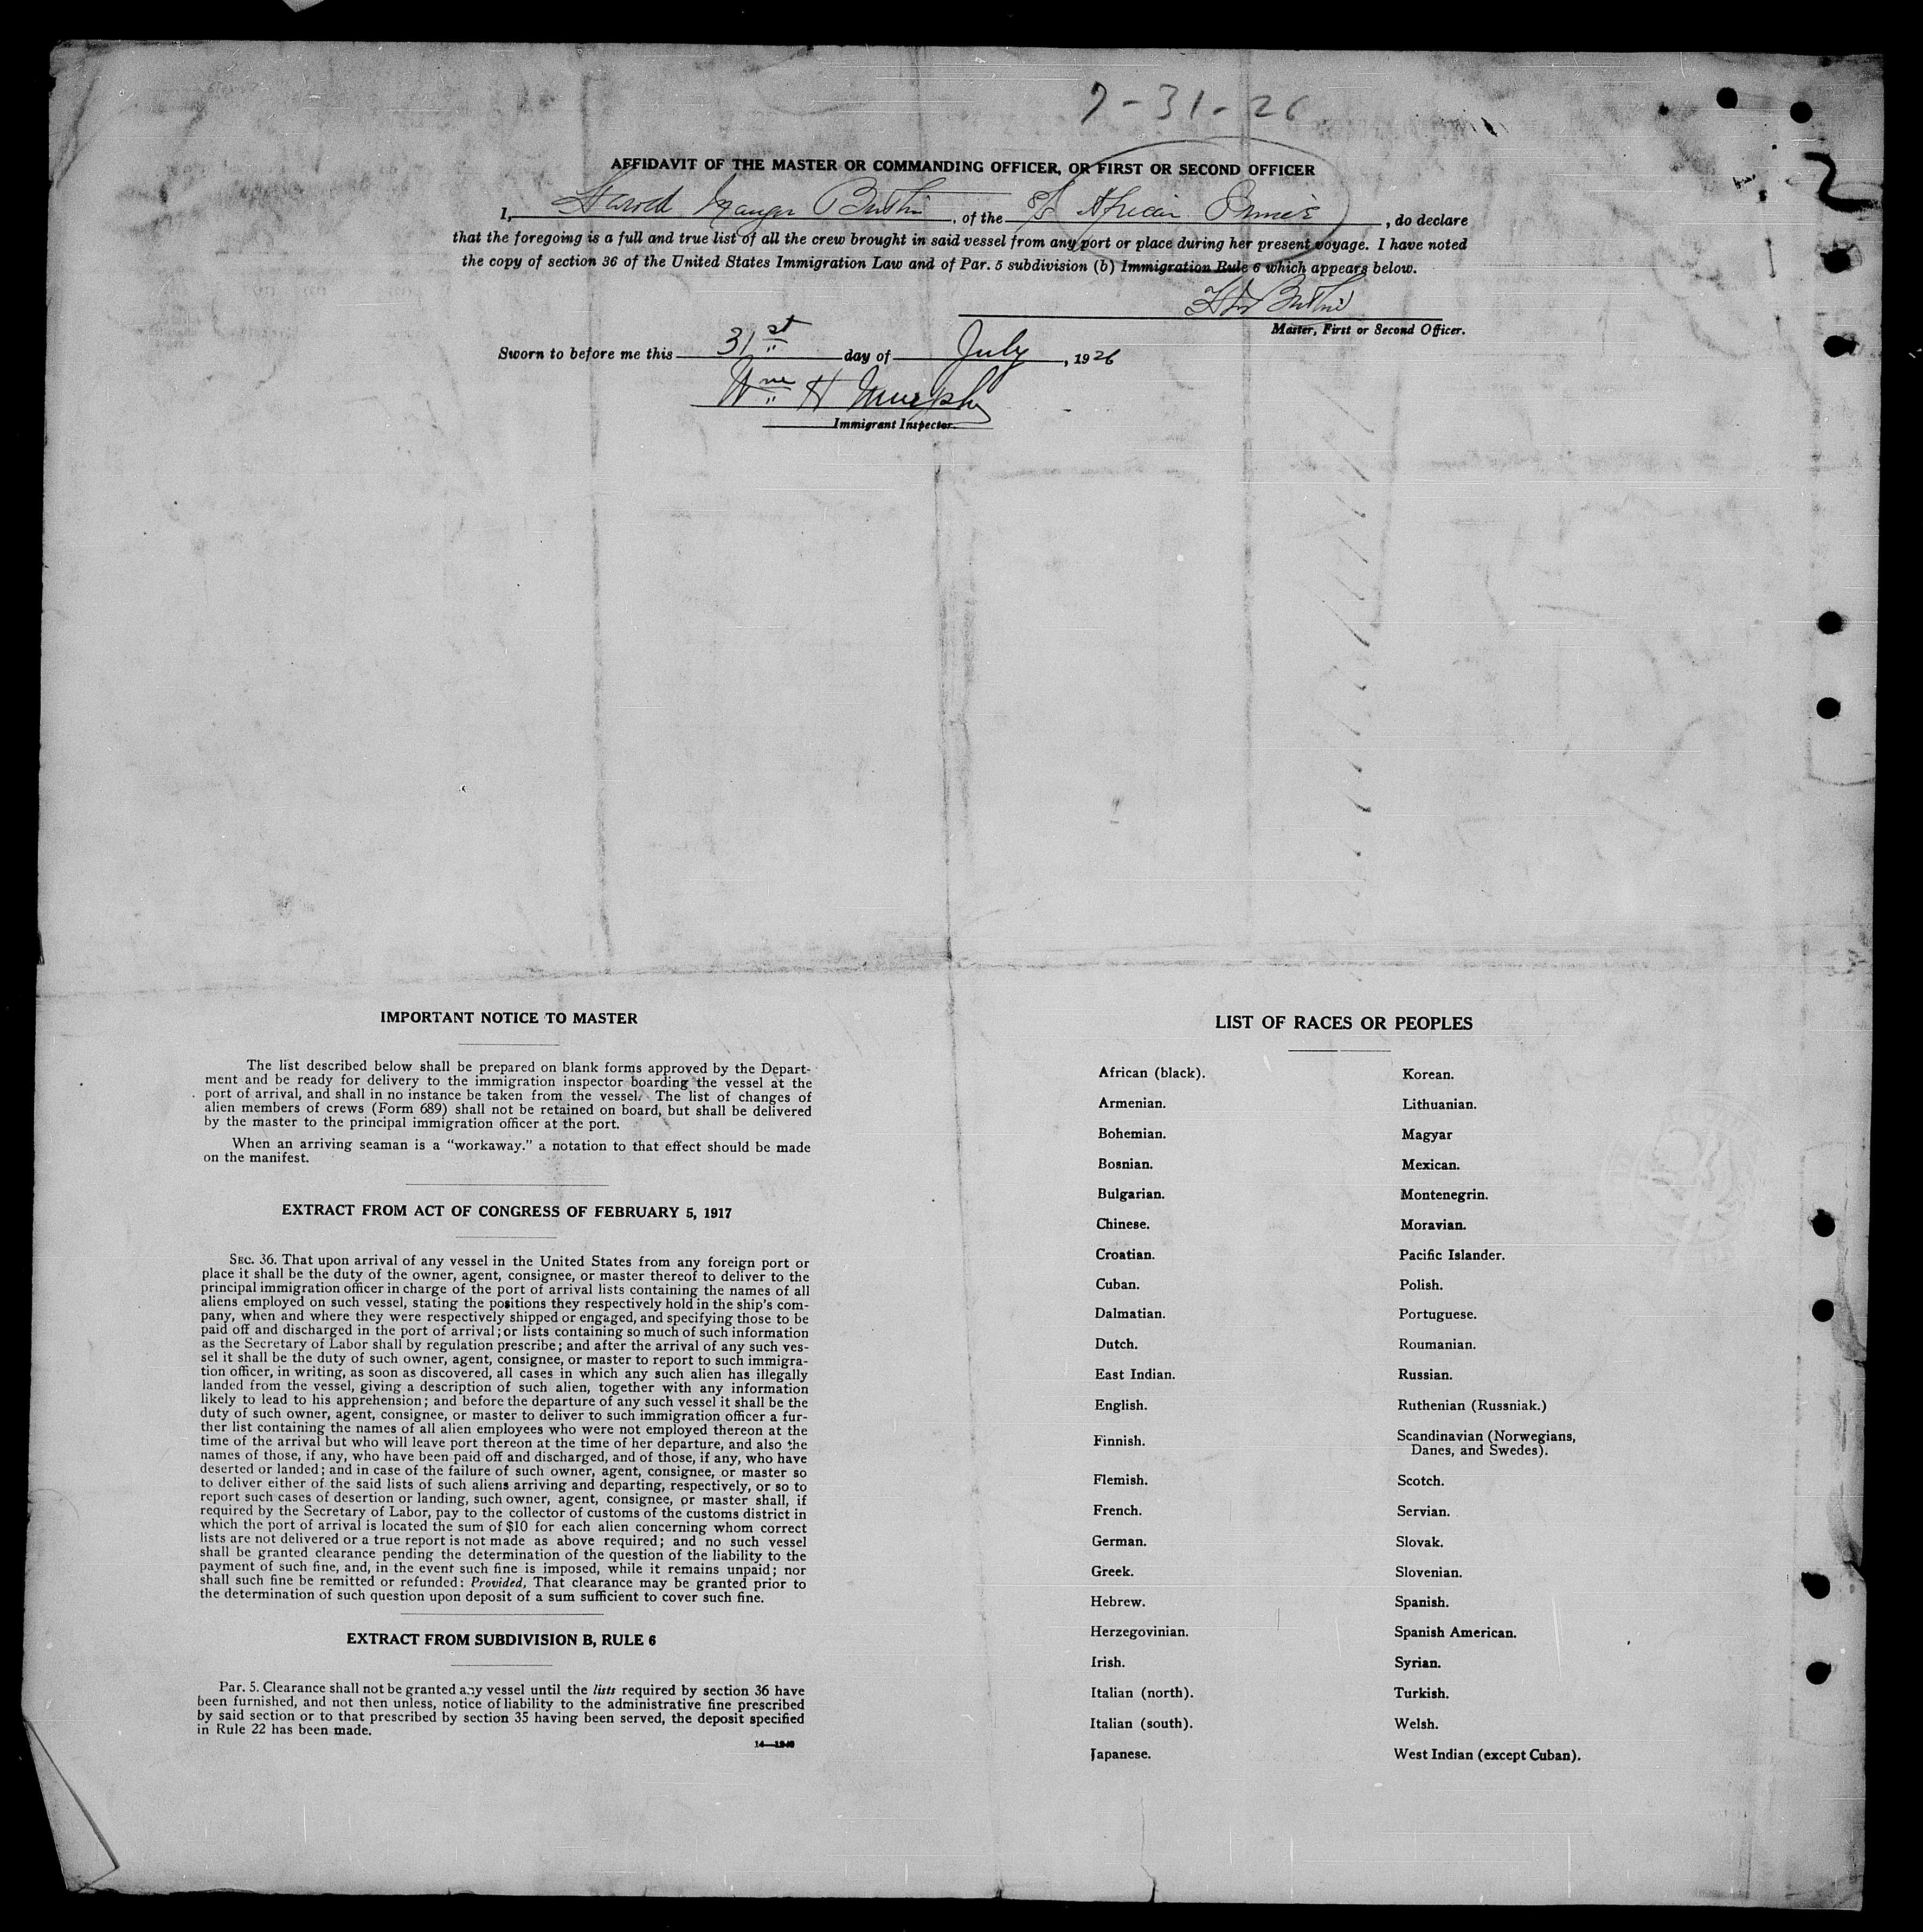 7-31-26
2
AFFIDAVIT OF THE MASTER OR COMMANDING OFFICER, OR FIRST OR SECOND OFFICER
I, Harold , of the S/S African Prince , do declare
that the foregoing is a full and true list of all the crew brought in said vessel from any port or place during her present voyage. I have noted
the copy of section 36 of the United States Immigration Law and of Par. 5 subdivision (b) Immigration Rule 6 which appears below.
Master, First or Second Officer.
Sworn to before me this 31st day of July, 1926
Wm H Murphy
Immigrant Inspector.
IMPORTANT NOTICE TO MASTER
The list described below shall be prepared on blank forms approved by the Depart-
ment and be ready for delivery to the immigration inspector boarding the vessel at the
port of arrival, and shall in no instance be taken from the vessel. The list of changes of
alien members of crews (Form 689) shall not be retained on board, but shall be delivered
by the master to the principal immigration officer at the port.
When an arriving seaman is a "workaway." a notation to that effect should be made
on the manifest.
EXTRACT FROM ACT OF CONGRESS OF FEBRUARY 5, 1917
SEC. 36. That upon arrival of any vessel in the United States from any foreign port or
place it shall be the duty of the owner, agent, consignee, or master thereof to deliver to the
principal immigration officer in charge of the port of arrival lists containing the names of all
aliens employed on such vessel, stating the positions they respectively hold in the ship's com-
pany, when and where they were respectively shipped or engaged, and specifying those to be
paid off and discharged in the port of arrival; or lists containing so much of such information
as the Secretary of Labor shall by regulation prescribe; and after the arrival of any such ves-
sel it shall be the duty of such owner, agent, consignee, or master to report to such immigra-
tion officer, in writing, as soon as discovered, all cases in which any such alien has illegally
landed from the vessel, giving a description of such alien, together with any information
likely to lead to his apprehension; and before the departure of any such vessel it shall be the
duty of such owner, agent, consignee, or master to deliver to such immigration officer a fur-
ther list containing the names of all alien employees who were not employed thereon at the
time of the arrival but who will leave port thereon at the time of her departure, and also the
names of those, if any, who have been paid off and discharged, and of those, if any, who have
deserted or landed; and in case of the failure of such owner, agent, consignee, or master so
to deliver either of the said lists of such aliens arriving and departing, respectively, or so to
report such cases of desertion or landing, such owner, agent, consignee, or master shall, if
required by the Secretary of Labor, pay to the collector of customs of the customs district in
which the port of arrival is located the sum of $10 for each alien concerning whom correct
lists are not delivered or a true report is not made as above required; and no such vessel
shall be granted clearance pending the determination of the question of the liability to the
payment of such fine, and, in the event such fine is imposed, while it remains unpaid; nor
shall such fine be remitted or refunded: Provided, That clearance may be granted prior to
the determination of such question upon deposit of a sum sufficient to cover such fine.
EXTRACT FROM SUBDIVISION B, RULE 6
Par. 5. Clearance shall not be granted any vessel until the lists required by section 36 have
been furnished, and not then unless, notice of liability to the administrative fine prescribed
by said section or to that prescribed by section 35 having been served, the deposit specified
in Rule 22 has been made.
LIST OF RACES OR PEOPLES
African (black).
Armenian.
Bohemian.
Bosnian.
Bulgarian.
Chinese.
Croatian.
Cuban.
Dalmatian.
Dutch.
East Indian.
English.
Finnish.
Flemish.
French.
German.
Greek.
Hebrew.
Herzegovinian.
Irish.
Italian (north).
Italian (south).
Japanese.
Korean.
Lithuanian.
Magyar
Mexican.
Montenegrin.
Moravian.
Pacific Islander.
Polish.
Portuguese.
Roumanian.
Russian.
Ruthenian (Russniak.)
Scandinavian (Norwegians,
Danes, and Swedes).
Scotch.
Servian.
Slovak.
Slovenian.
Spanish.
Spanish American.
Syrian.
Turkish.
Welsh.
West Indian (except Cuban).